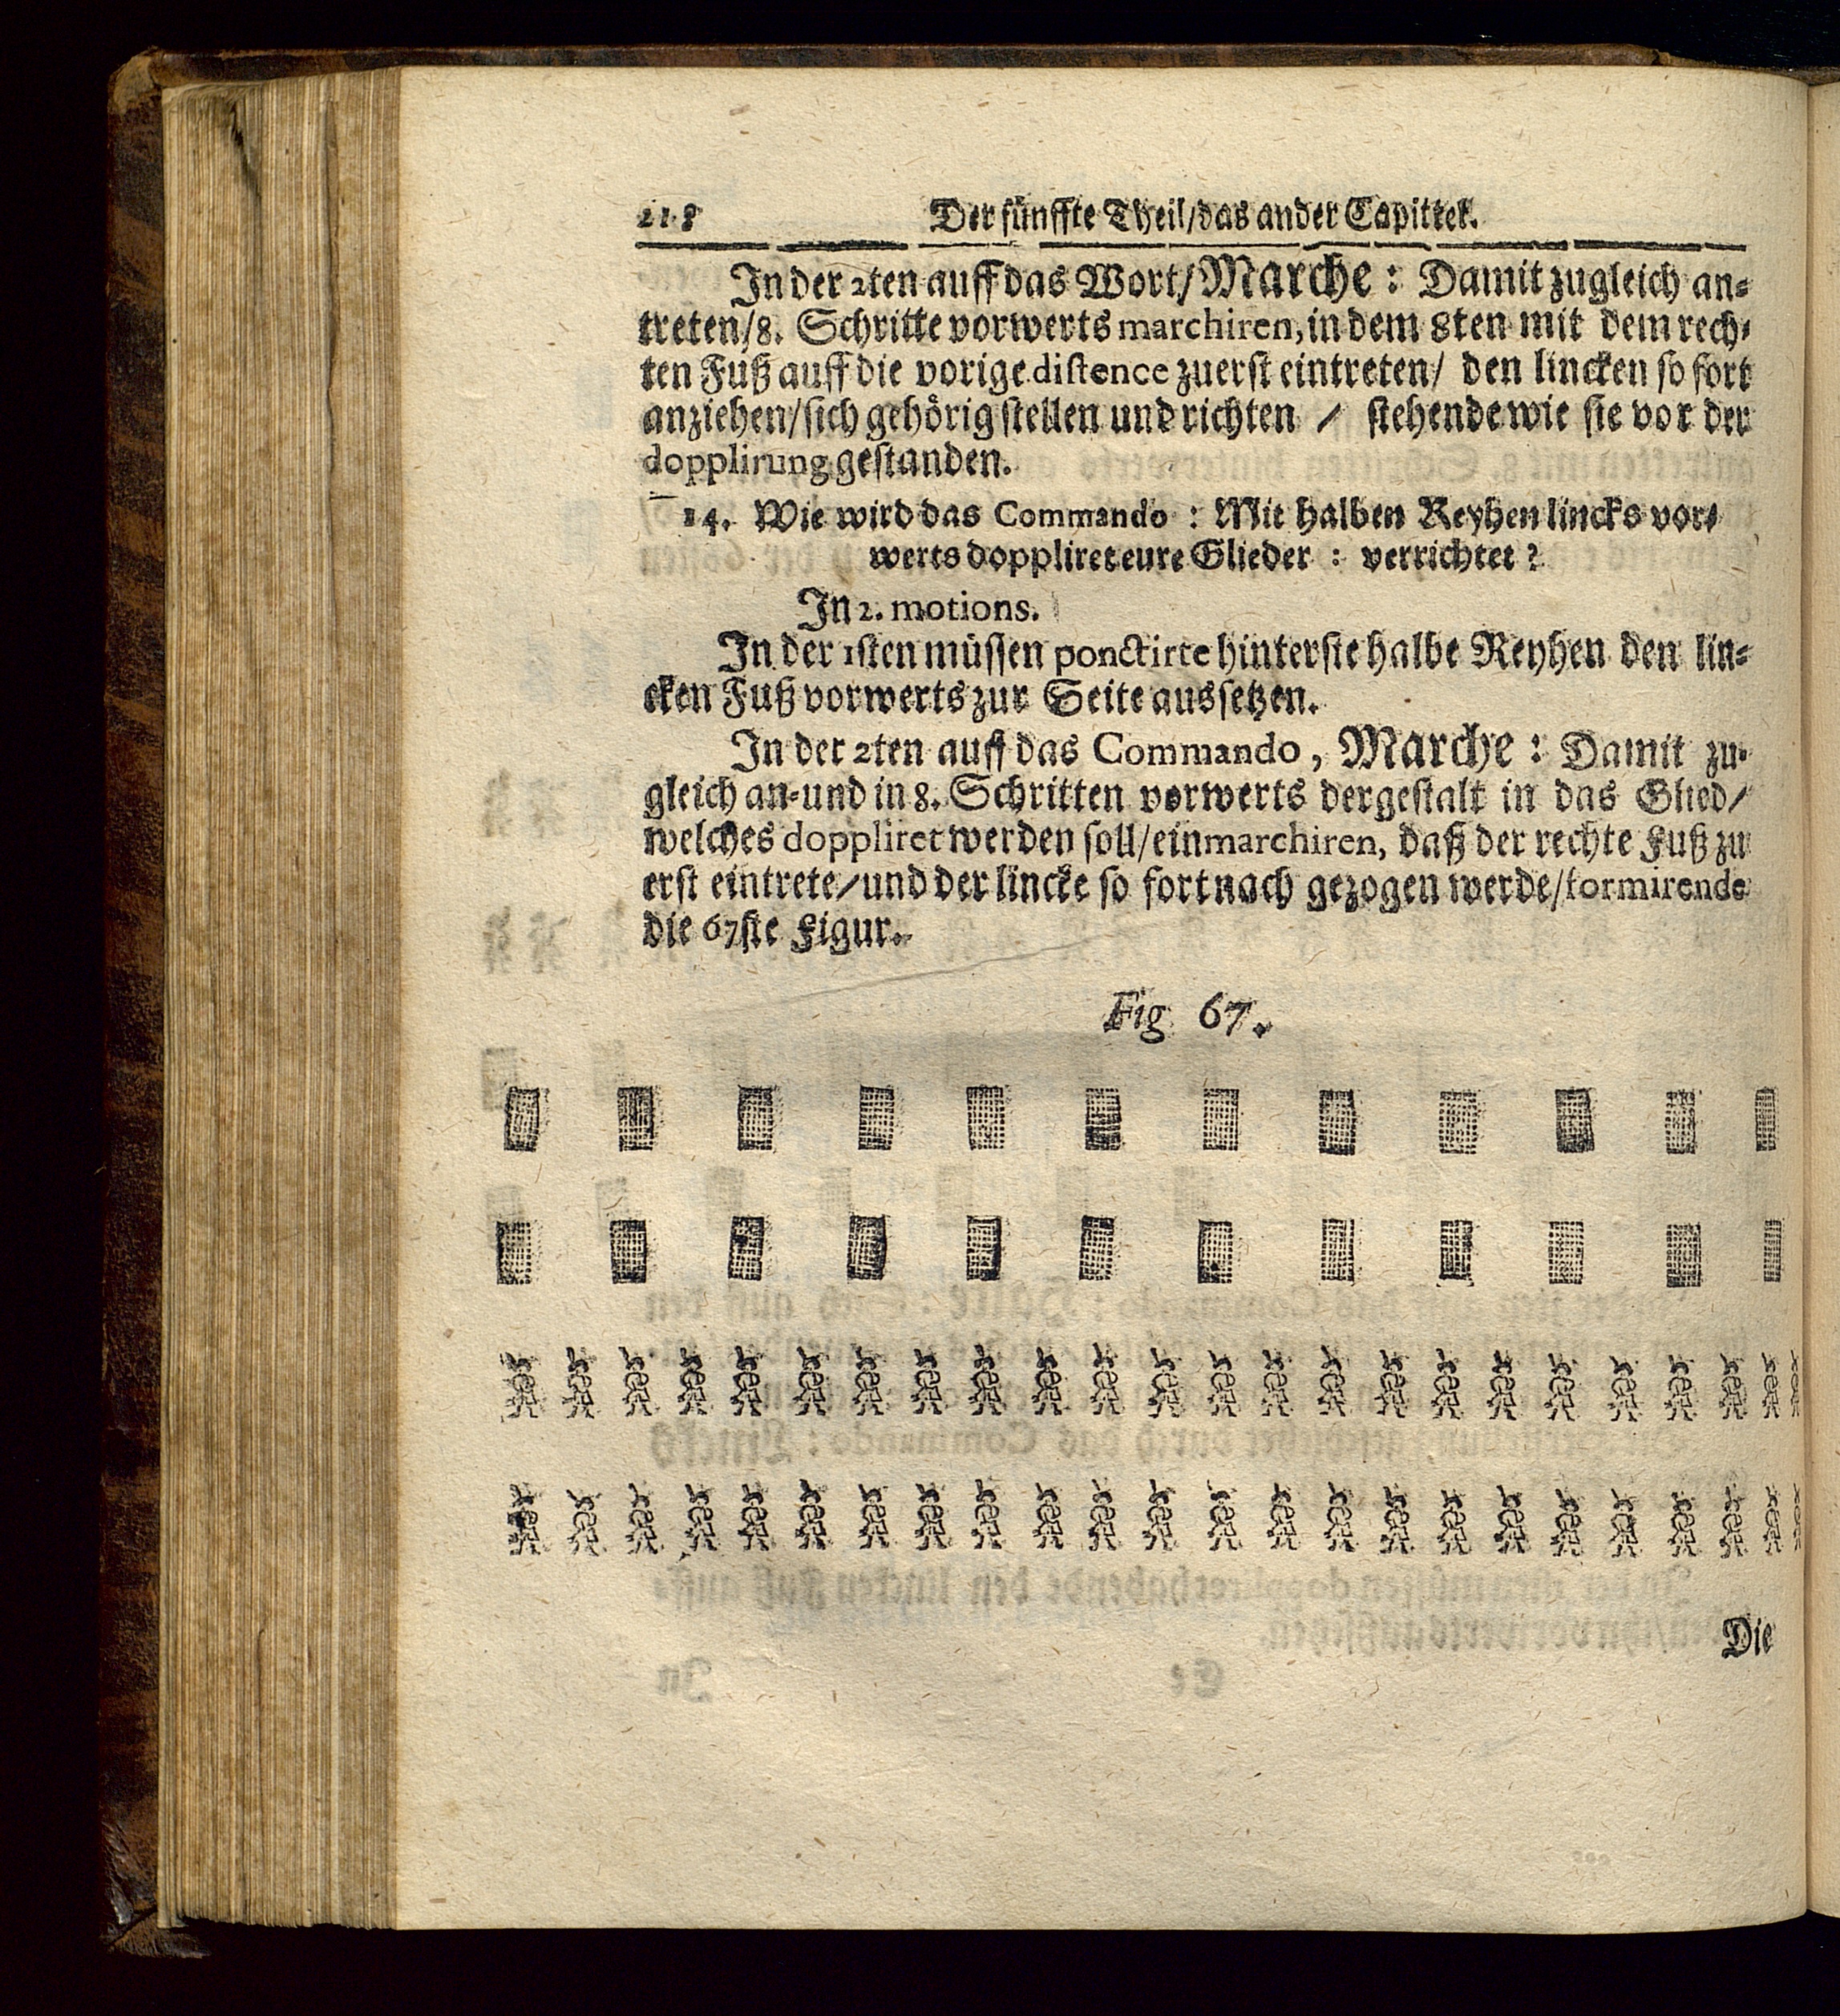 218 Der fünffte Theil/das ander Capittel.
In der 2ten auff das Wort/Marche: Damit zugleich an-
treten/8. Schritte vorwerts marchiren, in dem 8ten mit dem rech-
ten Fuß auff die vorige distence zuerst eintreten/ den lincken so fort
anziehen/sich gehörig stellen und richten / stehende wie sie vor der
dopplirung gestanden.
14. Wie wird das Commando: Mit halben Reyhen lincks vor-
werts doppliret eure Glieder: verrichtet?
In 2. motions.
In der 1sten müssen ponctirte hinterste halbe Reyhen den lin-
cken Fuß vorwerts zur Seite aussetzen.
In der 2ten auff das Commando, Marche: Damit zu-
gleich an-und in 8. Schritten vorwerts dergestalt in das Glied/
welches doppliret werden soll/einmarchiren, daß der rechte Fuß zu
erst eintrete/und der lincke so fort nach gezogen werde/formirende
die 67ste Figur.
Fig 67.
Die